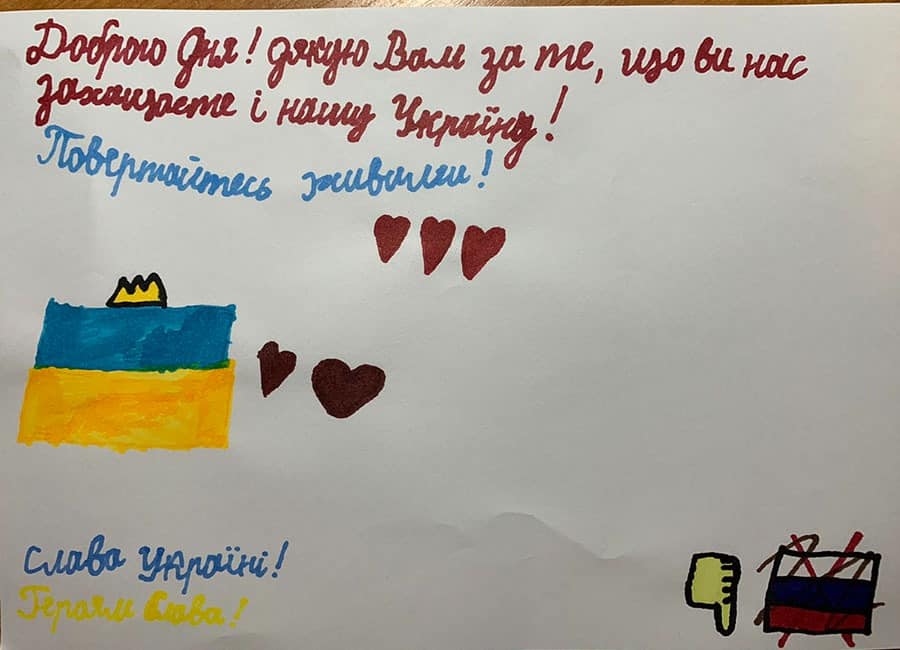 Доброго Дня! дякую Вам за те, що ви нас
захищаєте і нашу Україну!
Повертайтесь живими!
Слава Україні!
Героям Слава!